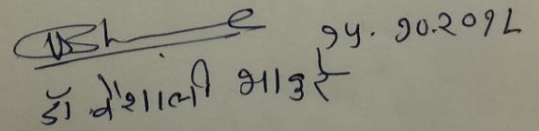 १५.१०.२०१८
डॉ वैशाली भाकरे